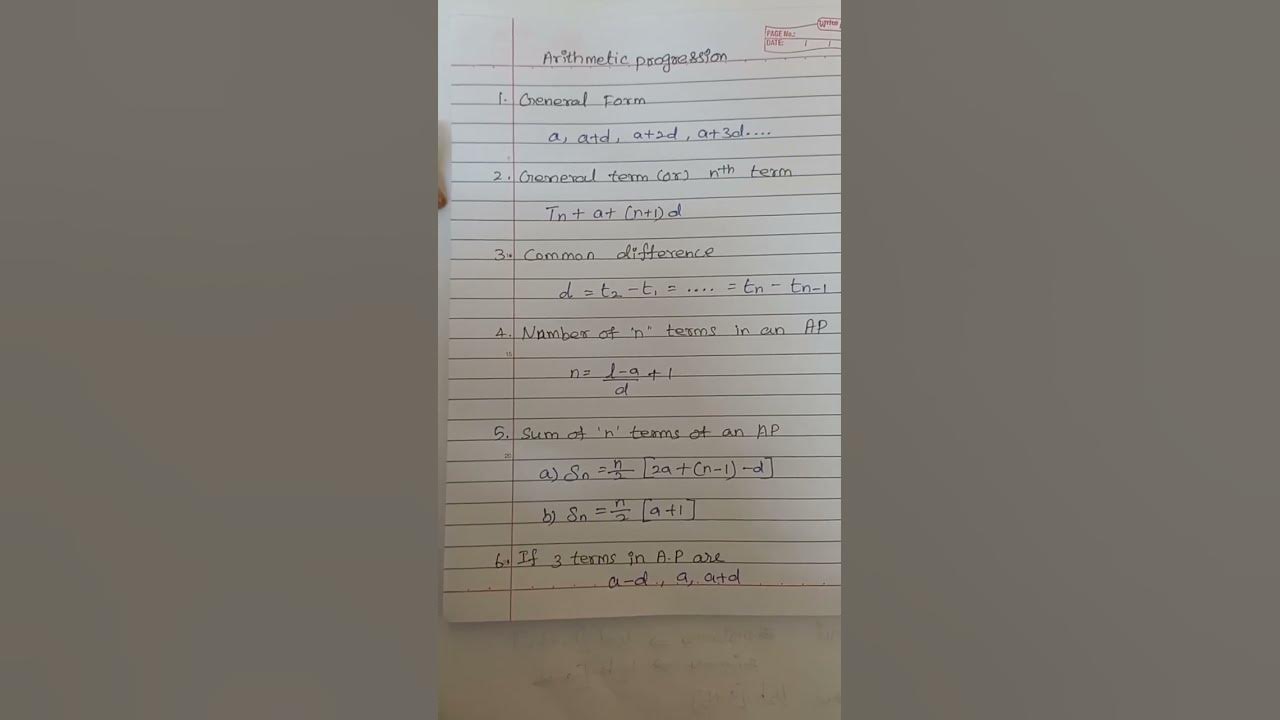 PAGE No.:
DATE: / /
Arithmetic progression
1. General Form
a, a+d, a+2d, a+3d....
2. General term (or) nth term
Tn + a+ (n+1) d
3. Common difference
d = t2 - t1 = .... = tn - tn-1
4. Number of 'n" terms in an AP
n= l-a/d + 1
15
5. Sum of 'n' terms of an AP
20
a) Sn = n/2 [2a+(n-1)-d]
b) Sn = n/2 [a+1]
6. If 3 terms in A.P are
a-d, a, a+d